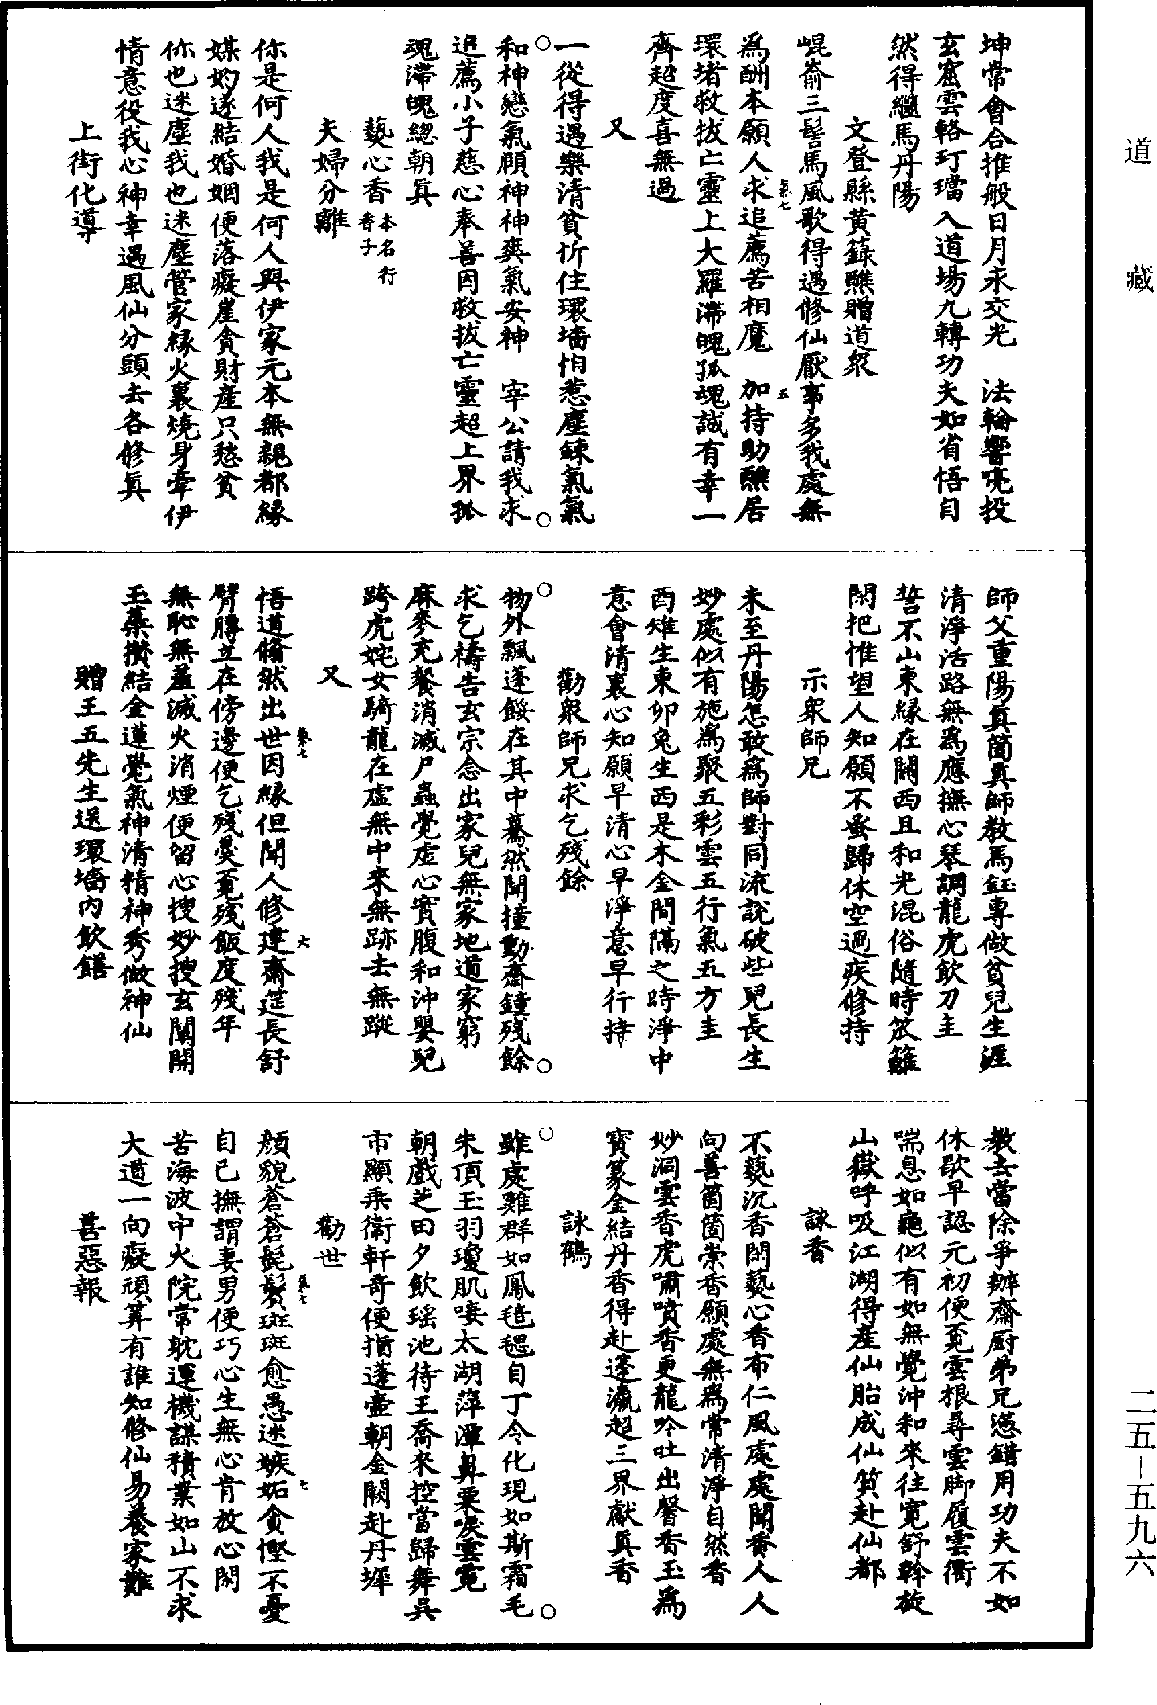 道藏
坤常會合推般日月永交光　法輪響喨投
玄窟雲輅玎璫入道場九轉功夫如省悟自
然得繼馬丹陽
文登縣黃籙醮贈道衆
崐崳三髻馬風歌得遇修仙厭事多我處無
爲酬本願人求追薦苦相魔　加持助醮居
環堵救拔亡靈上大羅滯魄孤魂誠有幸一
齊超度喜無過
又
一從得遇樂清貧忻住環墻怕惹塵鍊氣氣
和神戀氣頤神神爽氣安神　宰公請我求
追薦小子慈心奉善因救拔亡靈超上界孤
魂滯魄總朝眞
爇心香本名行香子
夫婦分離
你是何人我是何人與伊家元本無親都緣
媒妁遂結婚姻便落癡崖貪財產只愁貧
你也迷塵我也迷塵管家緣火裏燒身牽伊
情意役我心神幸遇風仙分頭去各修眞
上街化導
師父重陽眞箇眞師教馬鈺專做貧兒生涯
清淨活路無爲應撫心琴調龍虎飲刀圭
誓不山東緣在關西且和光混俗隨時笊籬
閑把惟望人知願不蚤歸休空過疾修持
示衆師兄
未至丹陽怎敢爲師對同流說破些兒長生
妙處似有施爲聚五彩雲五行氣五方圭
酉雉生東卯兔生西是木金間隔之時淨中
意會清裏心知願早清心早淨意早行持
勸衆師兄求乞殘餘
物外飄蓬餒在其中驀然聞撞動齋鐘殘餘
求乞禱告玄宗念出家兒無家地道家窮
麻麥充餐消滅尸蟲覺虛心實腹和沖嬰兒
跨虎姹女騎龍在虛無中來無跡去無蹤
又
悟道翛然出世因緣但聞人修建齋筵長舒
臂膊立在傍邊便乞殘羹覓殘飯度殘年
無恥無羞滅火消煙便留心搜妙搜玄闤開
玉藥攢結金蓮覺氣神清精神秀做神仙
贈王五先生送環墻內飲饍
教去當除爭辦齋厨弟兄憑錯用功夫不如
休歇早認元初便覓雲根尋雲脚履雲衢
喘息如龜似有如無覺沖和來往寬舒斡旋
山嶽呼吸江湖得產仙胎成仙質赴仙都
詠香
不爇沉香閑爇心香布仁風處處聞香人人
向善箇箇崇香願處無爲常清淨自然香
妙洞雲香虎嘯噴香更龍吟吐出馨香玉爲
寶篆金結丹香得赴蓬瀛超三界獻眞香
詠鶴
雖處雞群如鳳毰毸自丁令化現如斯霜毛
朱頂玉羽瓊肌唼太湖萍潭鼻粟唳雲霓
朝戲芝田夕飲瑶池待王喬來控當歸舞吳
市顯乘衛軒奇便指蓬壷朝金闕赴丹墀
勸世
顔貌蒼蒼髭鬢斑斑愈愚迷嫉妬貪慳不憂
自己撫謂妻男便巧心生無心肯放心閑
苦海波中火院常躭運機謀積業如山不求
大道一向癡頑筭有誰知修仙易養家難
善惡報
二五—五九六